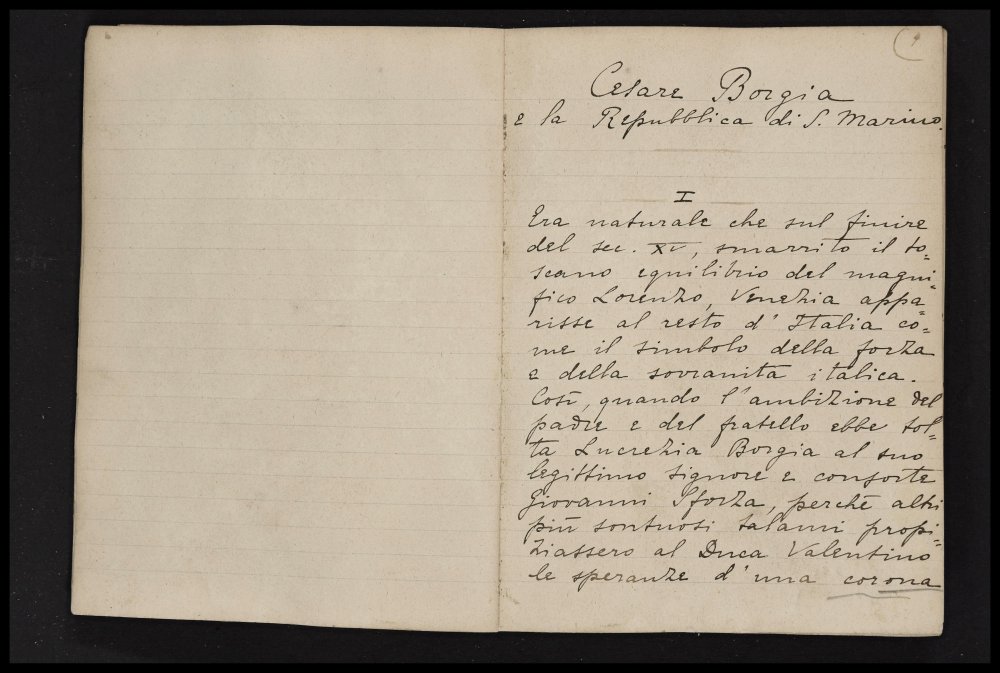 1
Cesare Borgia
e la Repubblica di S. Marino.
I
Era naturale che sul finire
del sec. XV, smarrito il to=
scano equilibrio del magni=
fico Lorenzo, Venezia appa=
risse al resto d'Italia co=
me il simbolo della forza
e della sovranità italica.
Così, quando l'ambizione del
padre e del fratello ebbe tol=
ta Lucrezia Borgia al suo
legittimo signore e consorte
Giovanni Sforza, perchè altri
più sontuosi talami propi=
ziassero al Duca Valentino
le speranze d'una corona